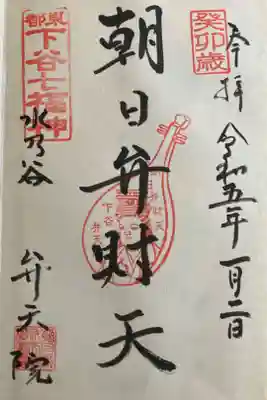 癸卯歳
奉拝 令和五年一月二日
朝日弁財天
東都
下谷七福神
水乃谷 弁天院